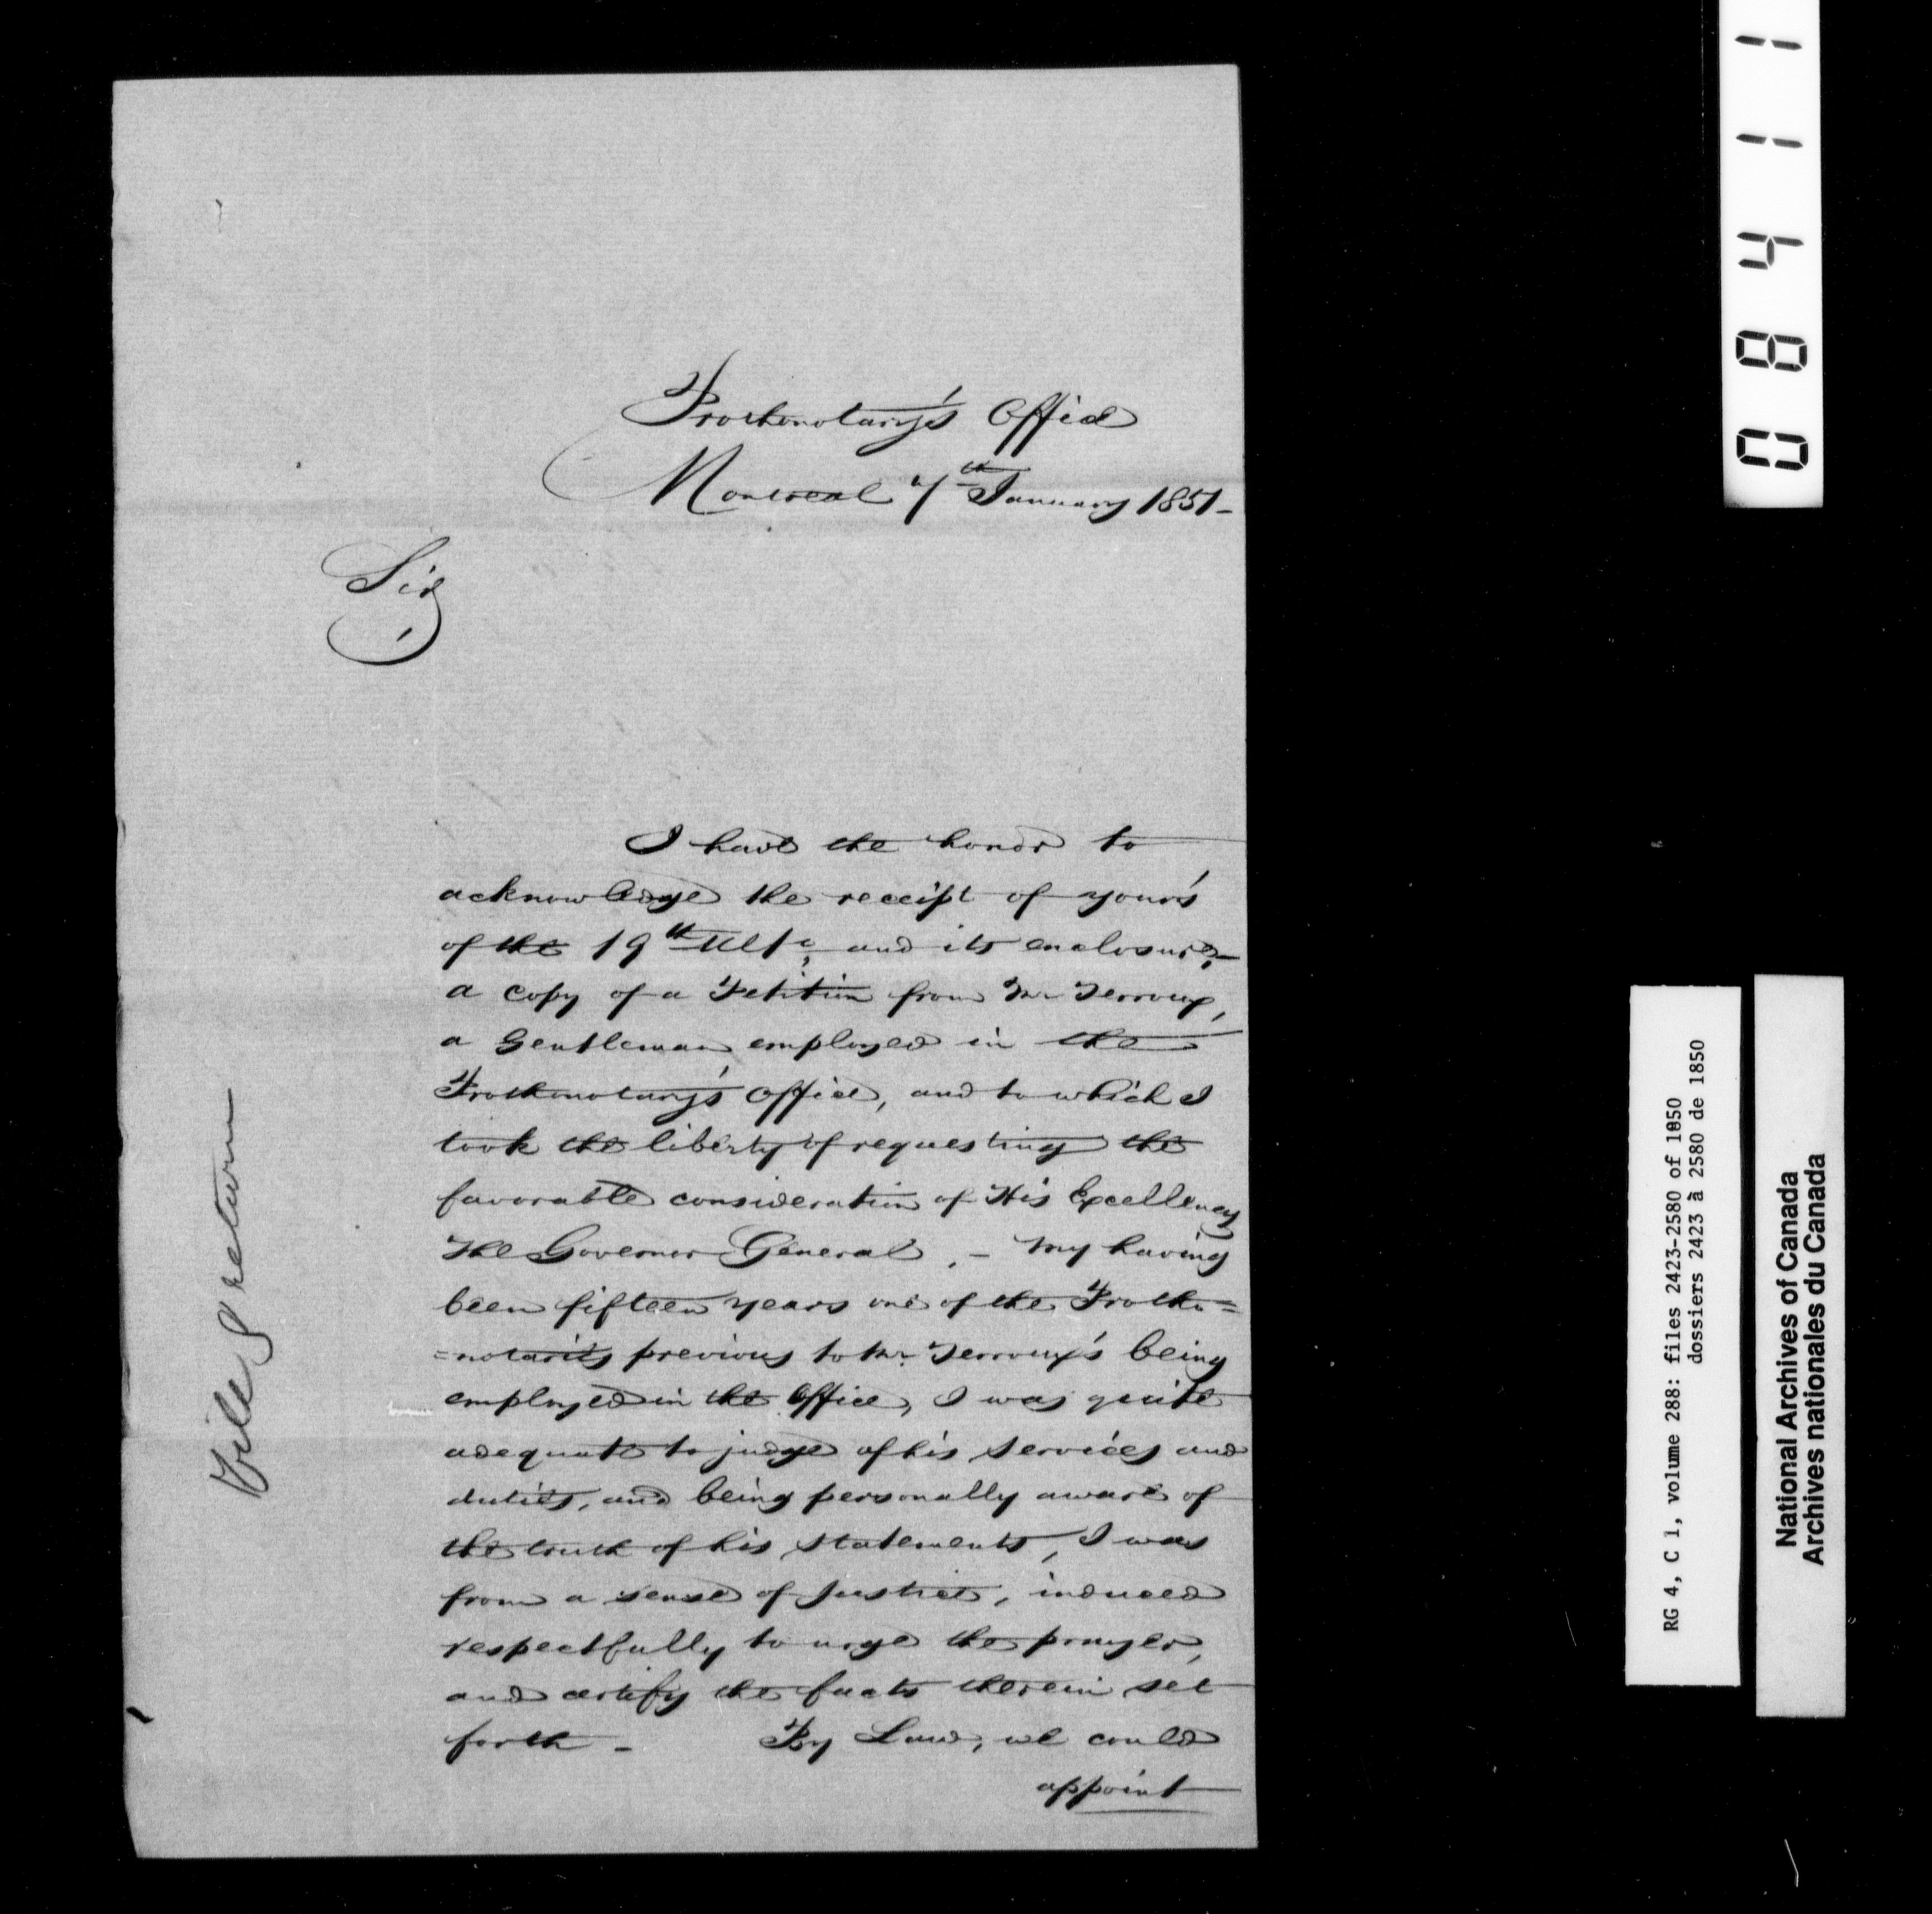 Prothonotary's Office
Montreal 7th January 1851-
Sir,
I have the honor to
acknowledge the receipt of your's
of the 19th Ulto, and its enclosure,
a copy of a Petition from Mr Terroux,
a Gentleman employed in the
Prothonotary's Office, and to which I
took the liberty of requesting the
favorable consideration of His Excellency
The Governor General, - My having
been fifteen years one of the Protho=
=notaries previous to Mr. Terroux's being
employed in the Office, I was quite
adequate to judge of his services and
duties, and being personally aware of
the truth of his statements, I was
from a sense of Justice, induced
respectfully to urge the prayer,
and certify the facts therein set
forth - By Law, we could
appoint
File & return
08411
RG 4, C 1, volume 288: files 2423-2580 of 1850
dossiers 2423 à 2580 de 1850
National Archives of Canada
Archives nationales du Canada